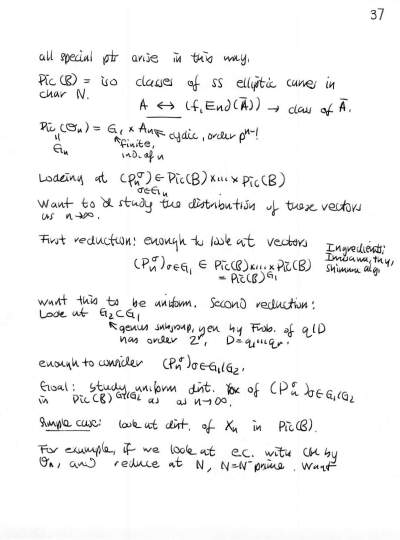 37
all special pts arise in this way.
Pic(B) = iso classes of ss elliptic curves in
char N.
A ↔ (f, End(Ā)) → class of Ā.
Pic(On) = G1 × An ← cyclic, order p^n-1
=
Gn
↖ finite,
ind. of n
Looking at (Pn^σ)σ∈Gn ∈ Pic(B)×...×Pic(B)
Want to study the distribution of these vectors
as n→∞.
First reduction: enough to look at vectors
(Pn^σ)σ∈G1 ∈ Pic(B)×...×Pic(B)
= Pic(B)^G1
Ingredients:
Ihara
Shimura
want this to be uniform. Second reduction:
Look at G2⊂G1
↖ genus subgroup, gen by Frob. of q|D
has order 2^r, D=q1...qr.
enough to consider (Pn^σ)σ∈G1/G2.
Goal: study uniform dist. of (Pn^σ)σ∈G1/G2
in Pic(B)^G1/G2 as n→∞.
Simple case: look at dist. of Xn in Pic(B).
For example, if we look at e.c. with CM by
On, and reduce at N, N=N⁻ prime. Want